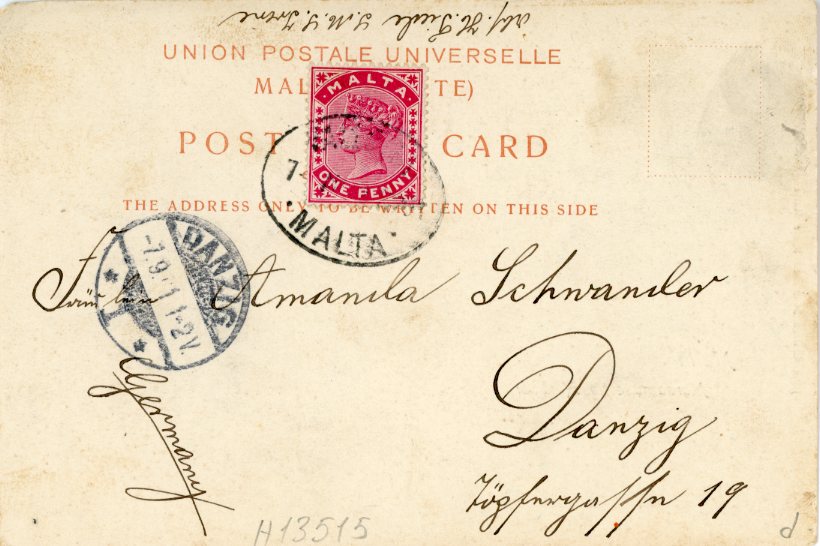 UNION POSTALE UNIVERSELLE
MAL TE)
POST CARD
THE ADDRESS ONLY TO BE WRITTEN ON THIS SIDE
MALTA
ONE PENNY
MALTA
DANZIG
-7.9. 1 1-2 V.
1
Fräulein Amanda Schwander
Danzig
Töpfergasse 19
Germany
H13515
d